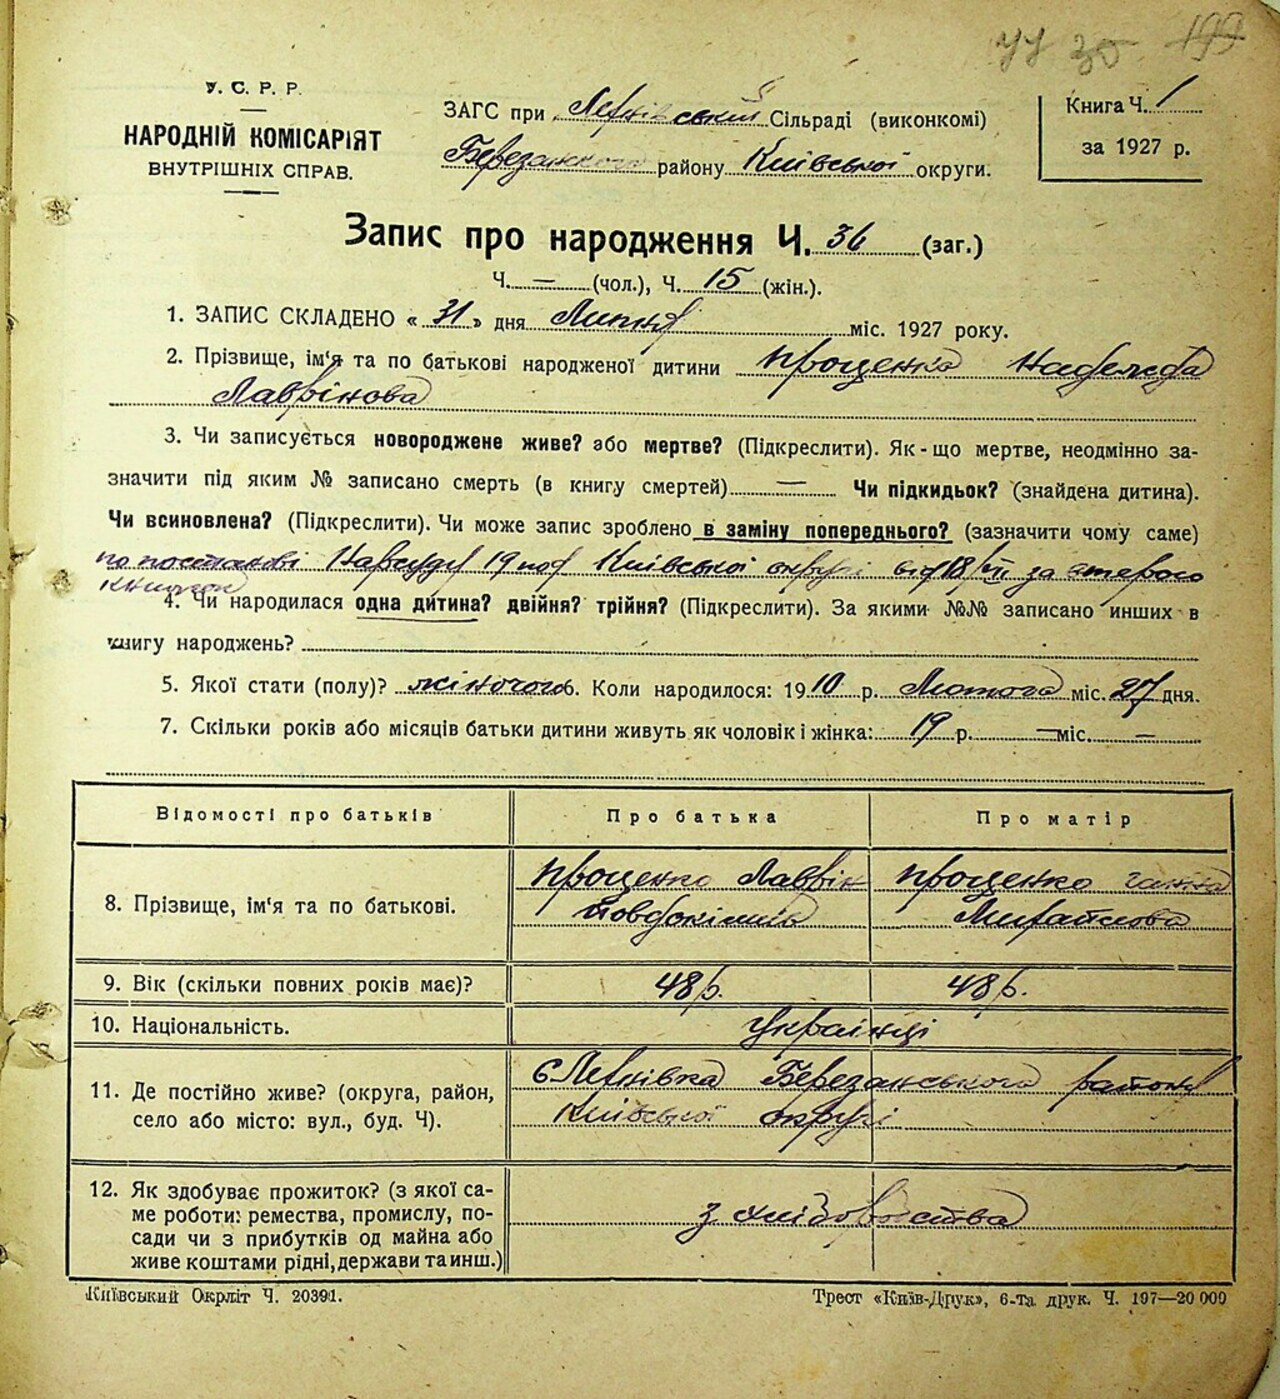 У. С. Р. Р.
НАРОДНІЙ КОМІСАРІЯТ
ВНУТРІШНІХ СПРАВ.
ЗАГС при Лехнівський Сільраді (виконкомі)
Березанського району Київської округи.
Книга Ч. 1
за 1927 р.
Запис про народження Ч. 36 (заг.)
Ч. — (чол.), Ч. 15 (жін.).
1. ЗАПИС СКЛАДЕНО « 31 » дня Липня міс. 1927 року.
2. Прізвище, ім'я та по батькові народженої дитини Проценко Надежда
Лаврінова
3. Чи записується новороджене живе? або мертве? (Підкреслити). Як-що мертве, неодмінно за-
значити під яким № записано смерть (в книгу смертей) — Чи підкидьок? (знайдена дитина).
Чи всиновлена? (Підкреслити). Чи може запис зроблено в заміну попереднього? (зазначити чому саме)
по постанові Нарсуду 19 Київської округи від 18/VII за
4. Чи народилася одна дитина? двійня? трійня? (Підкреслити). За якими №№ записано инших в
книгу народжень?
5. Якої стати (полу)? жіночого 6. Коли народилося: 1910 р. Лютого міс. 27 дня.
7. Скільки років або місяців батьки дитини живуть як чоловік і жінка: 19 р. — міс. —
Відомості про батьків
Про батька
Про матір
8. Прізвище, ім'я та по батькові.
Проценко Лаврін
Йовдокимів
Проценко Ганна
Михайлова
9. Вік (скільки повних років має)?
48 р.
48 р.
10. Національність.
Українці
11. Де постійно живе? (округа, район,
село або місто: вул., буд. Ч).
с Лехнівка Березанського району
Київської округи
12. Як здобуває прожиток? (з якої са-
ме роботи: ремества, промислу, по-
сади чи з прибутків од майна або
живе коштами рідні, держави та инш.)
з хліборобства
Київський Окрліт Ч. 20391.
Трест «Київ-Друк», 6-та друк. Ч. 197—20 000